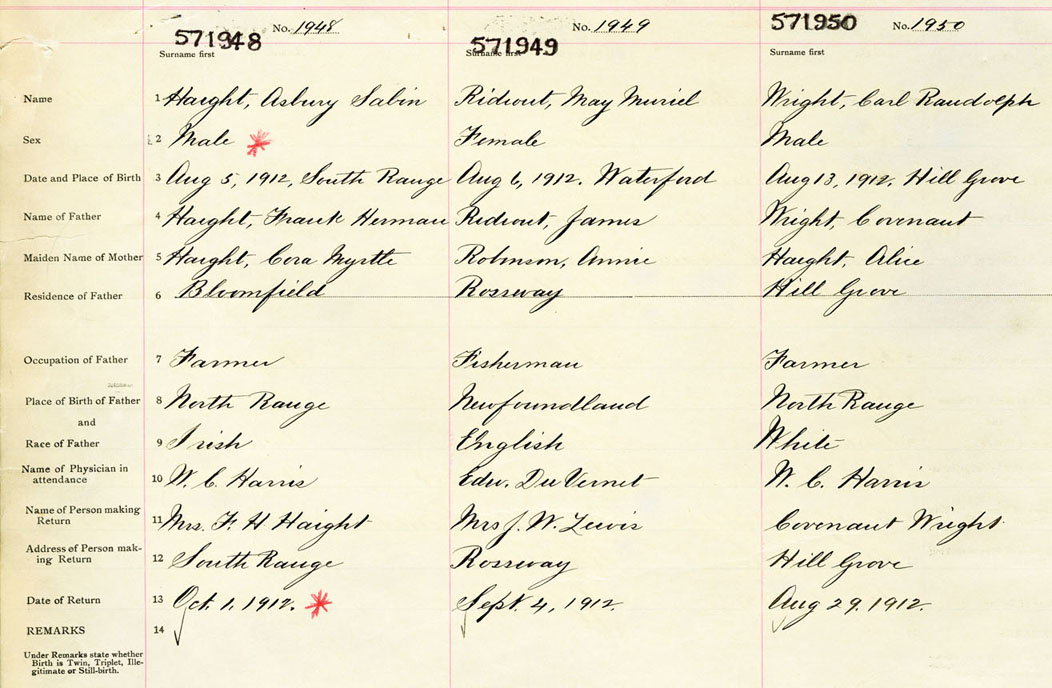 No. 1948 No. 1949 No. 1950
571948 571949 571950
Surname first Surname first Surname first
Name 1 Haight, Asbury Sabin Rideout, May Muriel Wright, Carl Randolph
Sex 2 Male Female Male
Date and Place of Birth 3 Aug 5, 1912, South Range Aug 6, 1912. Waterford Aug 13, 1912. Hill Grove
Name of Father 4 Haight, Frank Herman Rideout, James Wright, Covenant
Maiden Name of Mother 5 Haight, Cora Myrtle Robinson, Annie Haight, Alice
Residence of Father 6 Bloomfield Rossway Hill Grove
Occupation of Father 7 Farmer Fisherman Farmer
Place of Birth of Father 8 North Range Newfoundland North Range
and
Race of Father 9 Irish English White
Name of Physician in
attendance 10 W. C. Harris Edw. Du Vernet W. C. Harris
Name of Person making
Return 11 Mrs. F. H Haight Mrs J. W. Lewis Covenant Wright
Address of Person mak-
ing Return 12 South Range Rossway Hill Grove
Date of Return 13 Oct. 1, 1912. Sept. 4, 1912. Aug 29. 1912.
REMARKS 14
Under Remarks state whether
Birth is Twin, Triplet, Ille-
gitimate or Still-birth.